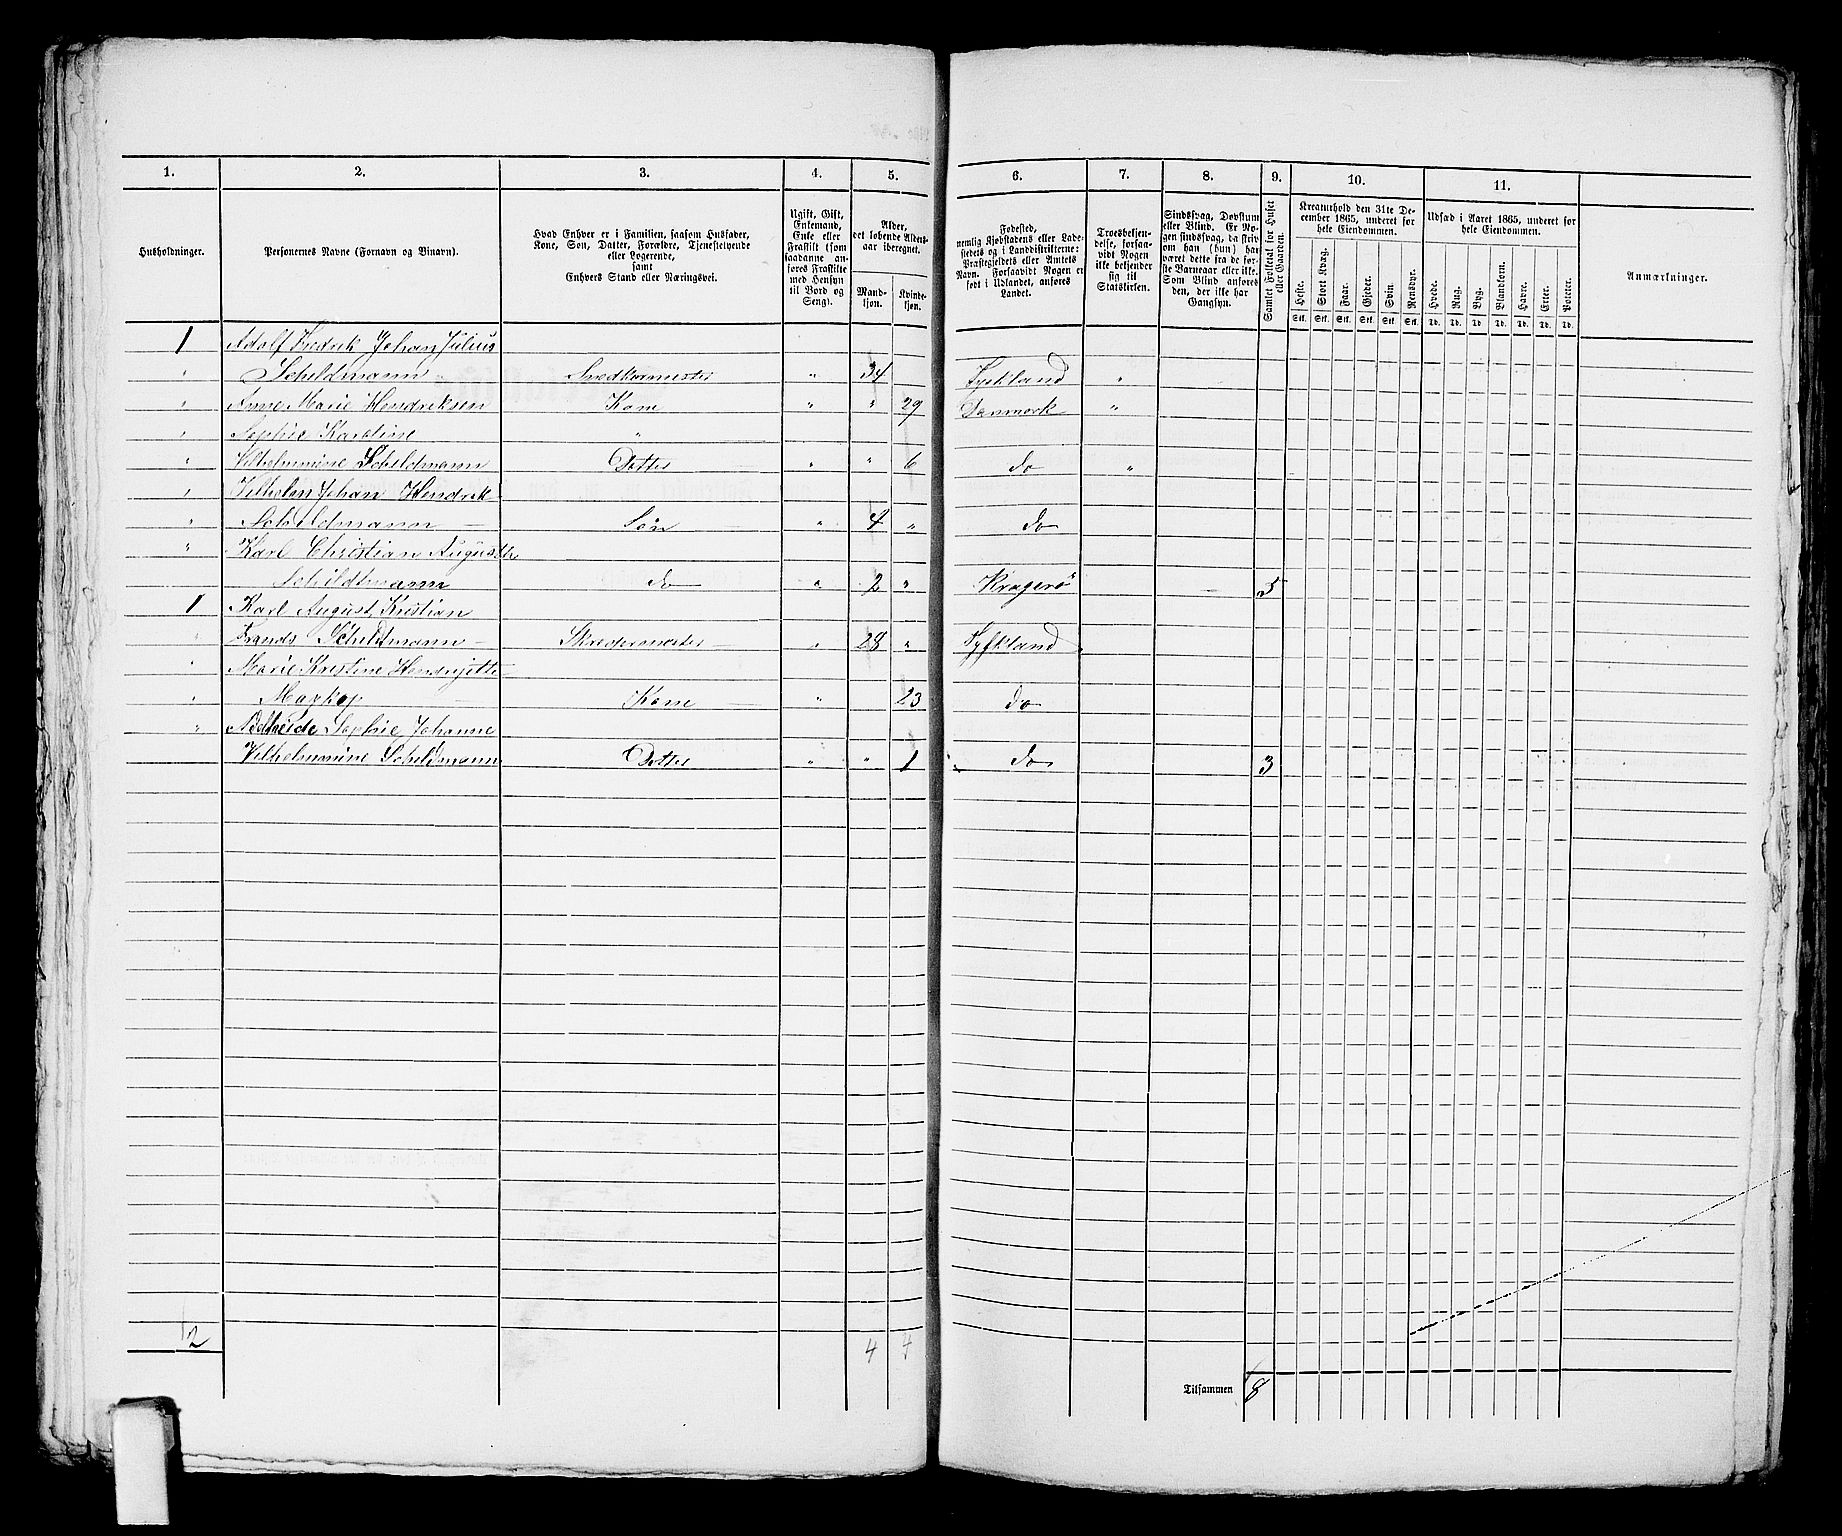 1. 2. 3. 4. 5. 6. 7. 8. 9. 10. 11.
Husholdninger.
Personernes Navne (Fornavn og Binavn).
Hvad Enhver er i Familien, saasom Husfader,
Kone, Søn, Datter, Forældre, Tjenestetyende
eller Logerende,
samt
Enhvers Stand eller Næringsvei.
Ugift, Gift,
Enkemand,
Enke eller
Fraskilt (som
saadanne an-
føres Fraskilte
med Hensyn
til Bord og
Seng).
Alder,
det løbende Alders-
aar iberegnet.
Mand-
kjøn.
Kvinde-
kjøn.
Fødested,
nemlig Kjøbstadens eller Lade-
stedets og i Landdistrikterne:
Præstegjeldets eller Amtets
Navn. Forsaavidt Nogen er
født i Udlandet, anføres
Landet.
Troesbekjen-
delse, forsaa-
vidt Nogen
ikke bekjender
sig til
Statskirken.
Sindssvag, Døvstum
eller Blind. Er No-
gen sindssvag, da skriv
om han (hun) har
været dette fra de før-
ste Barneaar eller ikke.
Som Blind anføres
den, der ikke har
Gangsyn.
Samlet Folketal for Huset
eller Gaarden.
Kreaturhold den 31te De-
cember 1865, underet for
hele Eiendommen.
Heste. Stort Kvæg. Faar. Gjeder. Svin. Rensdyr.
Stk. Stk. Stk. Stk. Stk. Stk.
Udsæd i Aaret 1865, underet for
hele Eiendommen.
Hvede. Rug. Byg. Blandkorn. Havre. Erter. Poteter.
Td. Td. Td. Td. Td. Td. Td.
Anmærkninger.
1 Adolf Fredrik Johan Julius
" Schildmann Snedkermester " 34 Tyskland "
" Anne Marie Hendriksen Kone " " 29 Danmark "
" Sophie Karoline "
" Vilhelmmine Schildmann Datter " " 6 do "
" Vilhelm Johan Hendrik
" Schildmann Søn " 4 " do
" Karl Christian Auguste
Schildtmann do " 2 " Kragerø 5
1 Karl August Kristian
" Frands Schildtmann Skredermester " 28 " Tyskland
" Marie Kristine Hendrjette
" Kone " 23 do
" Sophie Johanne
Vilhelmmine Schildmann Datter " " 1 do 3
2 4 4
Tilsammen 8